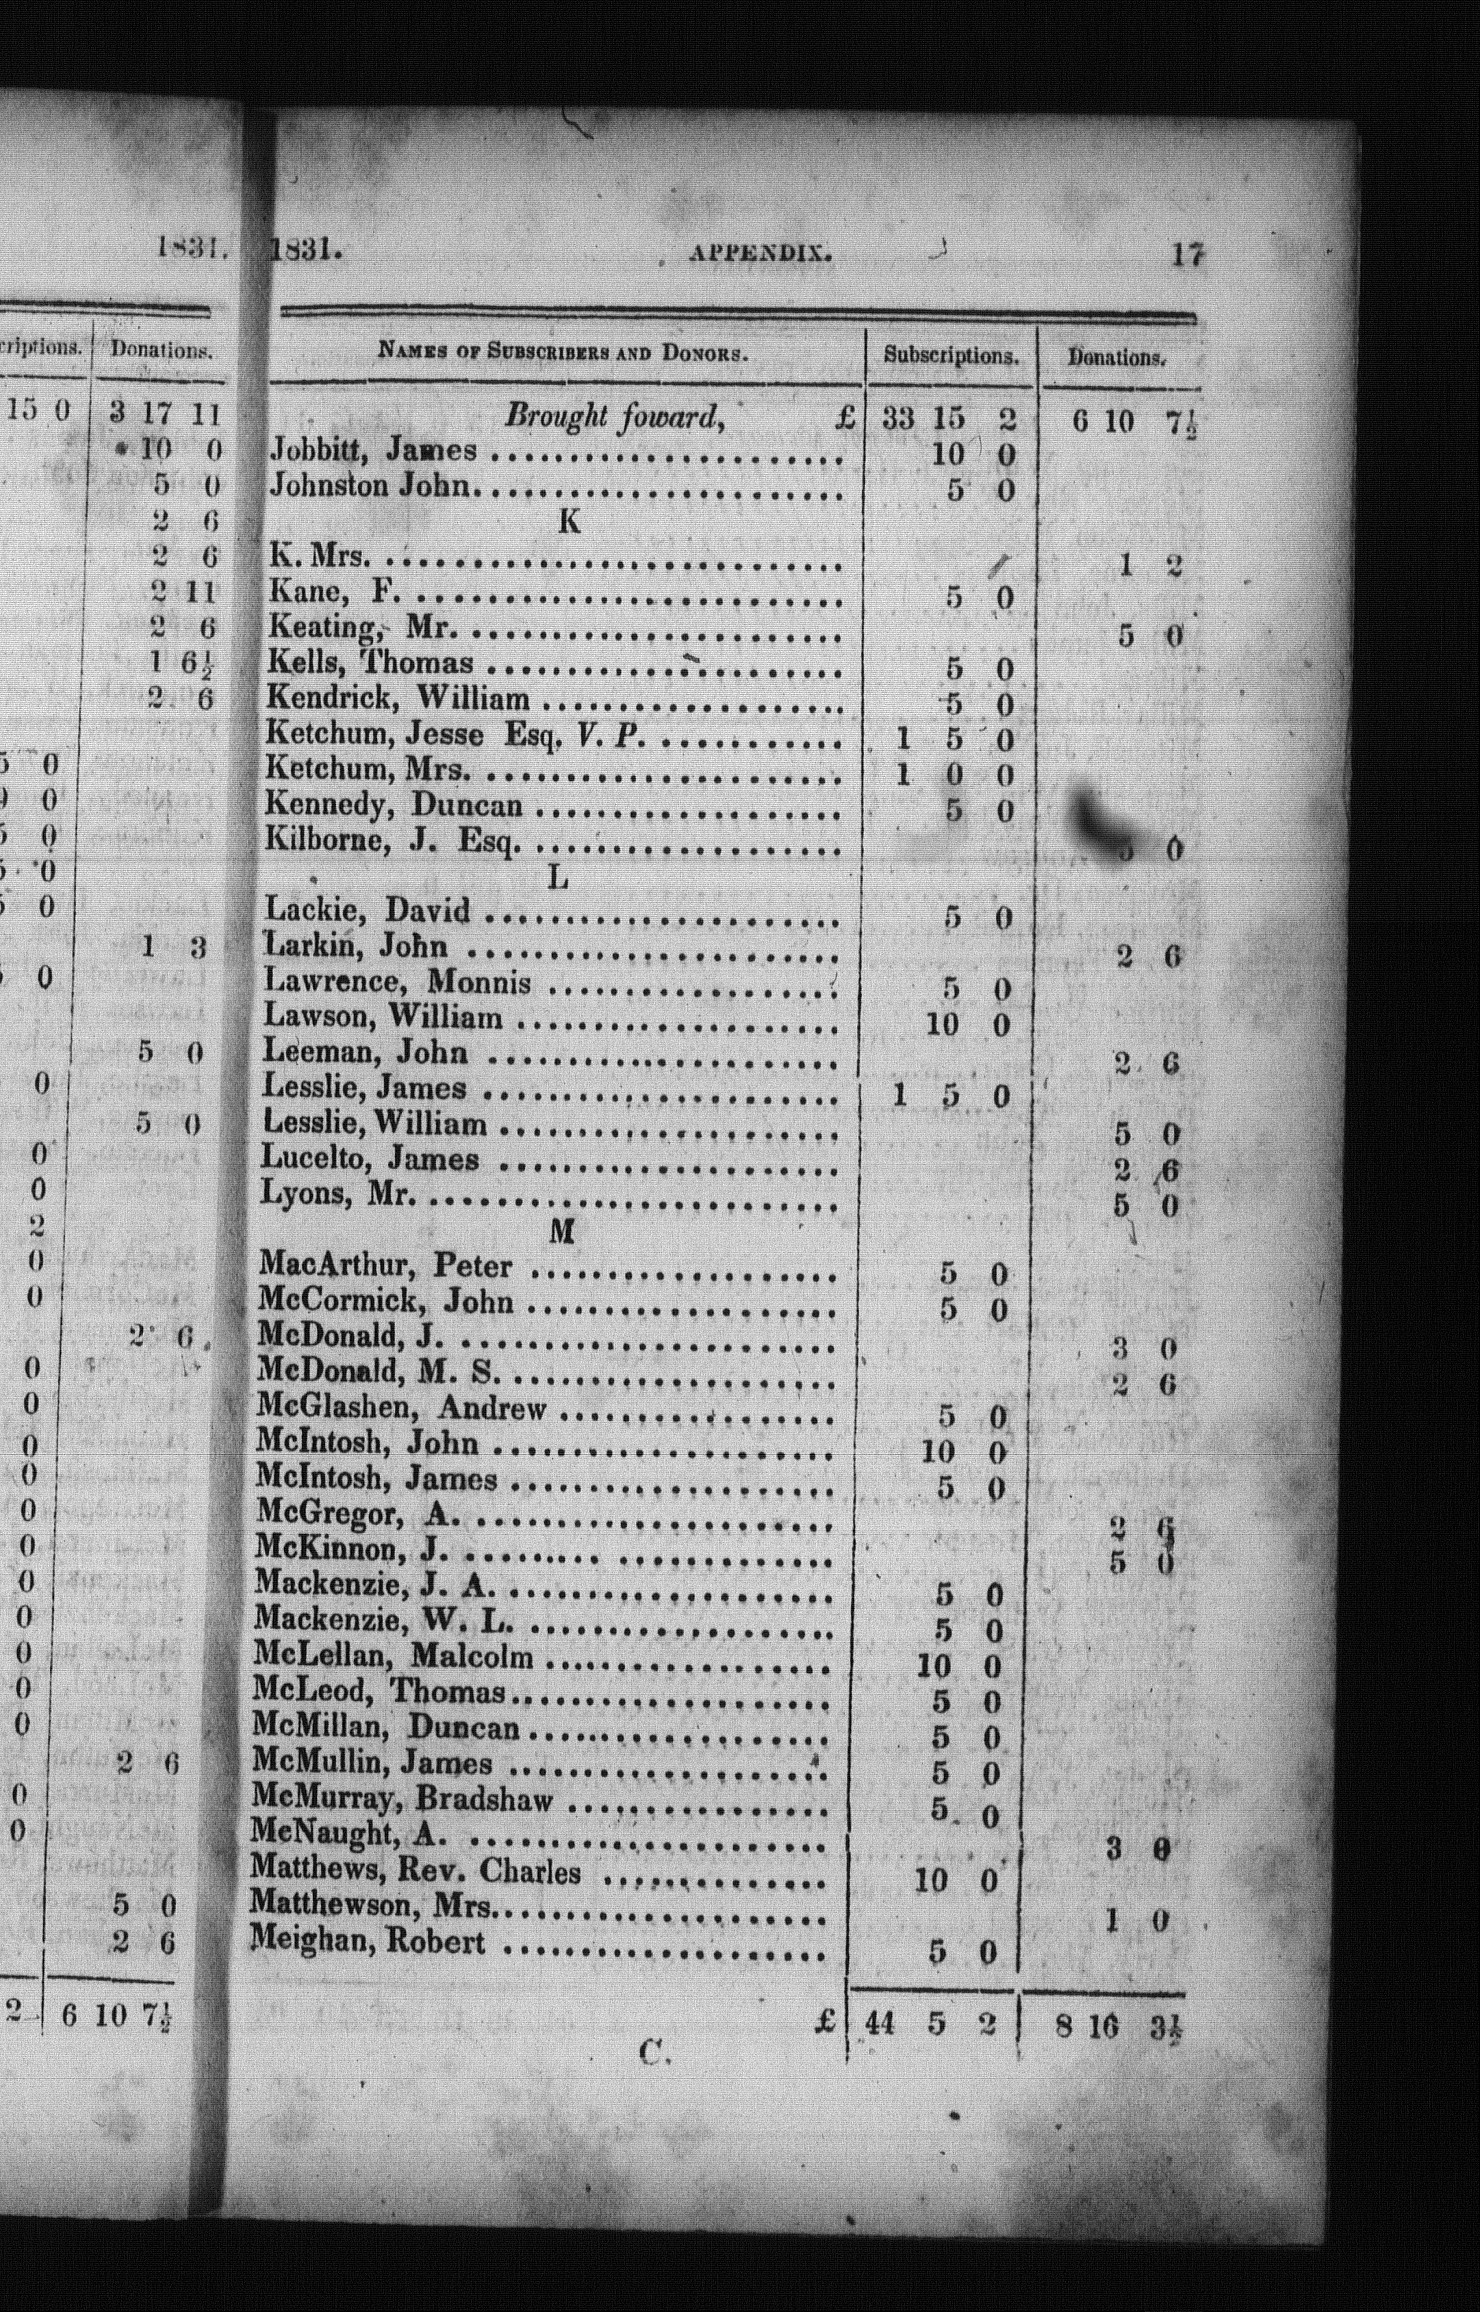 1831.
criptions. Donations.
15 0 3 17 11
10 0
5 0
2 6
2 6
2 11
2 6
1 6½
2 6
5 0
0
5 0
5 0
5 0
1 3
0
5 0
0
5 0
0
0
2
0
0
2 6
0
0
0
0
0
0
0
0
0
0
0
2 6
0
0
5 0
2 6
2 6 10 7½
1831. APPENDIX. 17
NAMES OF SUBSCRIBERS AND DONORS. Subscriptions. Donations.
Brought foward, £ 33 15 2 6 10 7½
Jobbitt, James ...................... 10 0
Johnston John....................... 5 0
K
K. Mrs. ............................ 1 2
Kane, F. ........................... 5 0
Keating, Mr. ....................... 5 0
Kells, Thomas ...................... 5 0
Kendrick, William ................... 5 0
Ketchum, Jesse Esq. V. P. ............ 1 5 0
Ketchum, Mrs. ...................... 1 0 0
Kennedy, Duncan ................... 5 0
Kilborne, J. Esq. .................... 5 0
L
Lackie, David ...................... 5 0
Larkin, John ....................... 2 6
Lawrence, Monnis .................. 5 0
Lawson, William .................... 10 0
Leeman, John ...................... 2 6
Lesslie, James ...................... 1 5 0
Lesslie, William ..................... 5 0
Lucelto, James ..................... 2 6
Lyons, Mr. ......................... 5 0
M
MacArthur, Peter ................... 5 0
McCormick, John ................... 5 0
McDonald, J. ....................... 3 0
McDonald, M. S. .................... 2 6
McGlashen, Andrew ................. 5 0
McIntosh, John ..................... 10 0
McIntosh, James .................... 5 0
McGregor, A. ....................... 2 6
McKinnon, J. ......... ............. 5 0
Mackenzie, J. A. .................... 5 0
Mackenzie, W. L. ................... 5 0
McLellan, Malcolm .................. 10 0
McLeod, Thomas.................... 5 0
McMillan, Duncan ................... 5 0
McMullin, James .................... 5 0
McMurray, Bradshaw ................ 5 0
McNaught, A. ...................... 3 0
Matthews, Rev. Charles .............. 10 0
Matthewson, Mrs..................... 1 0
Meighan, Robert .................... 5 0
£ 44 5 2 8 16 3½
C.